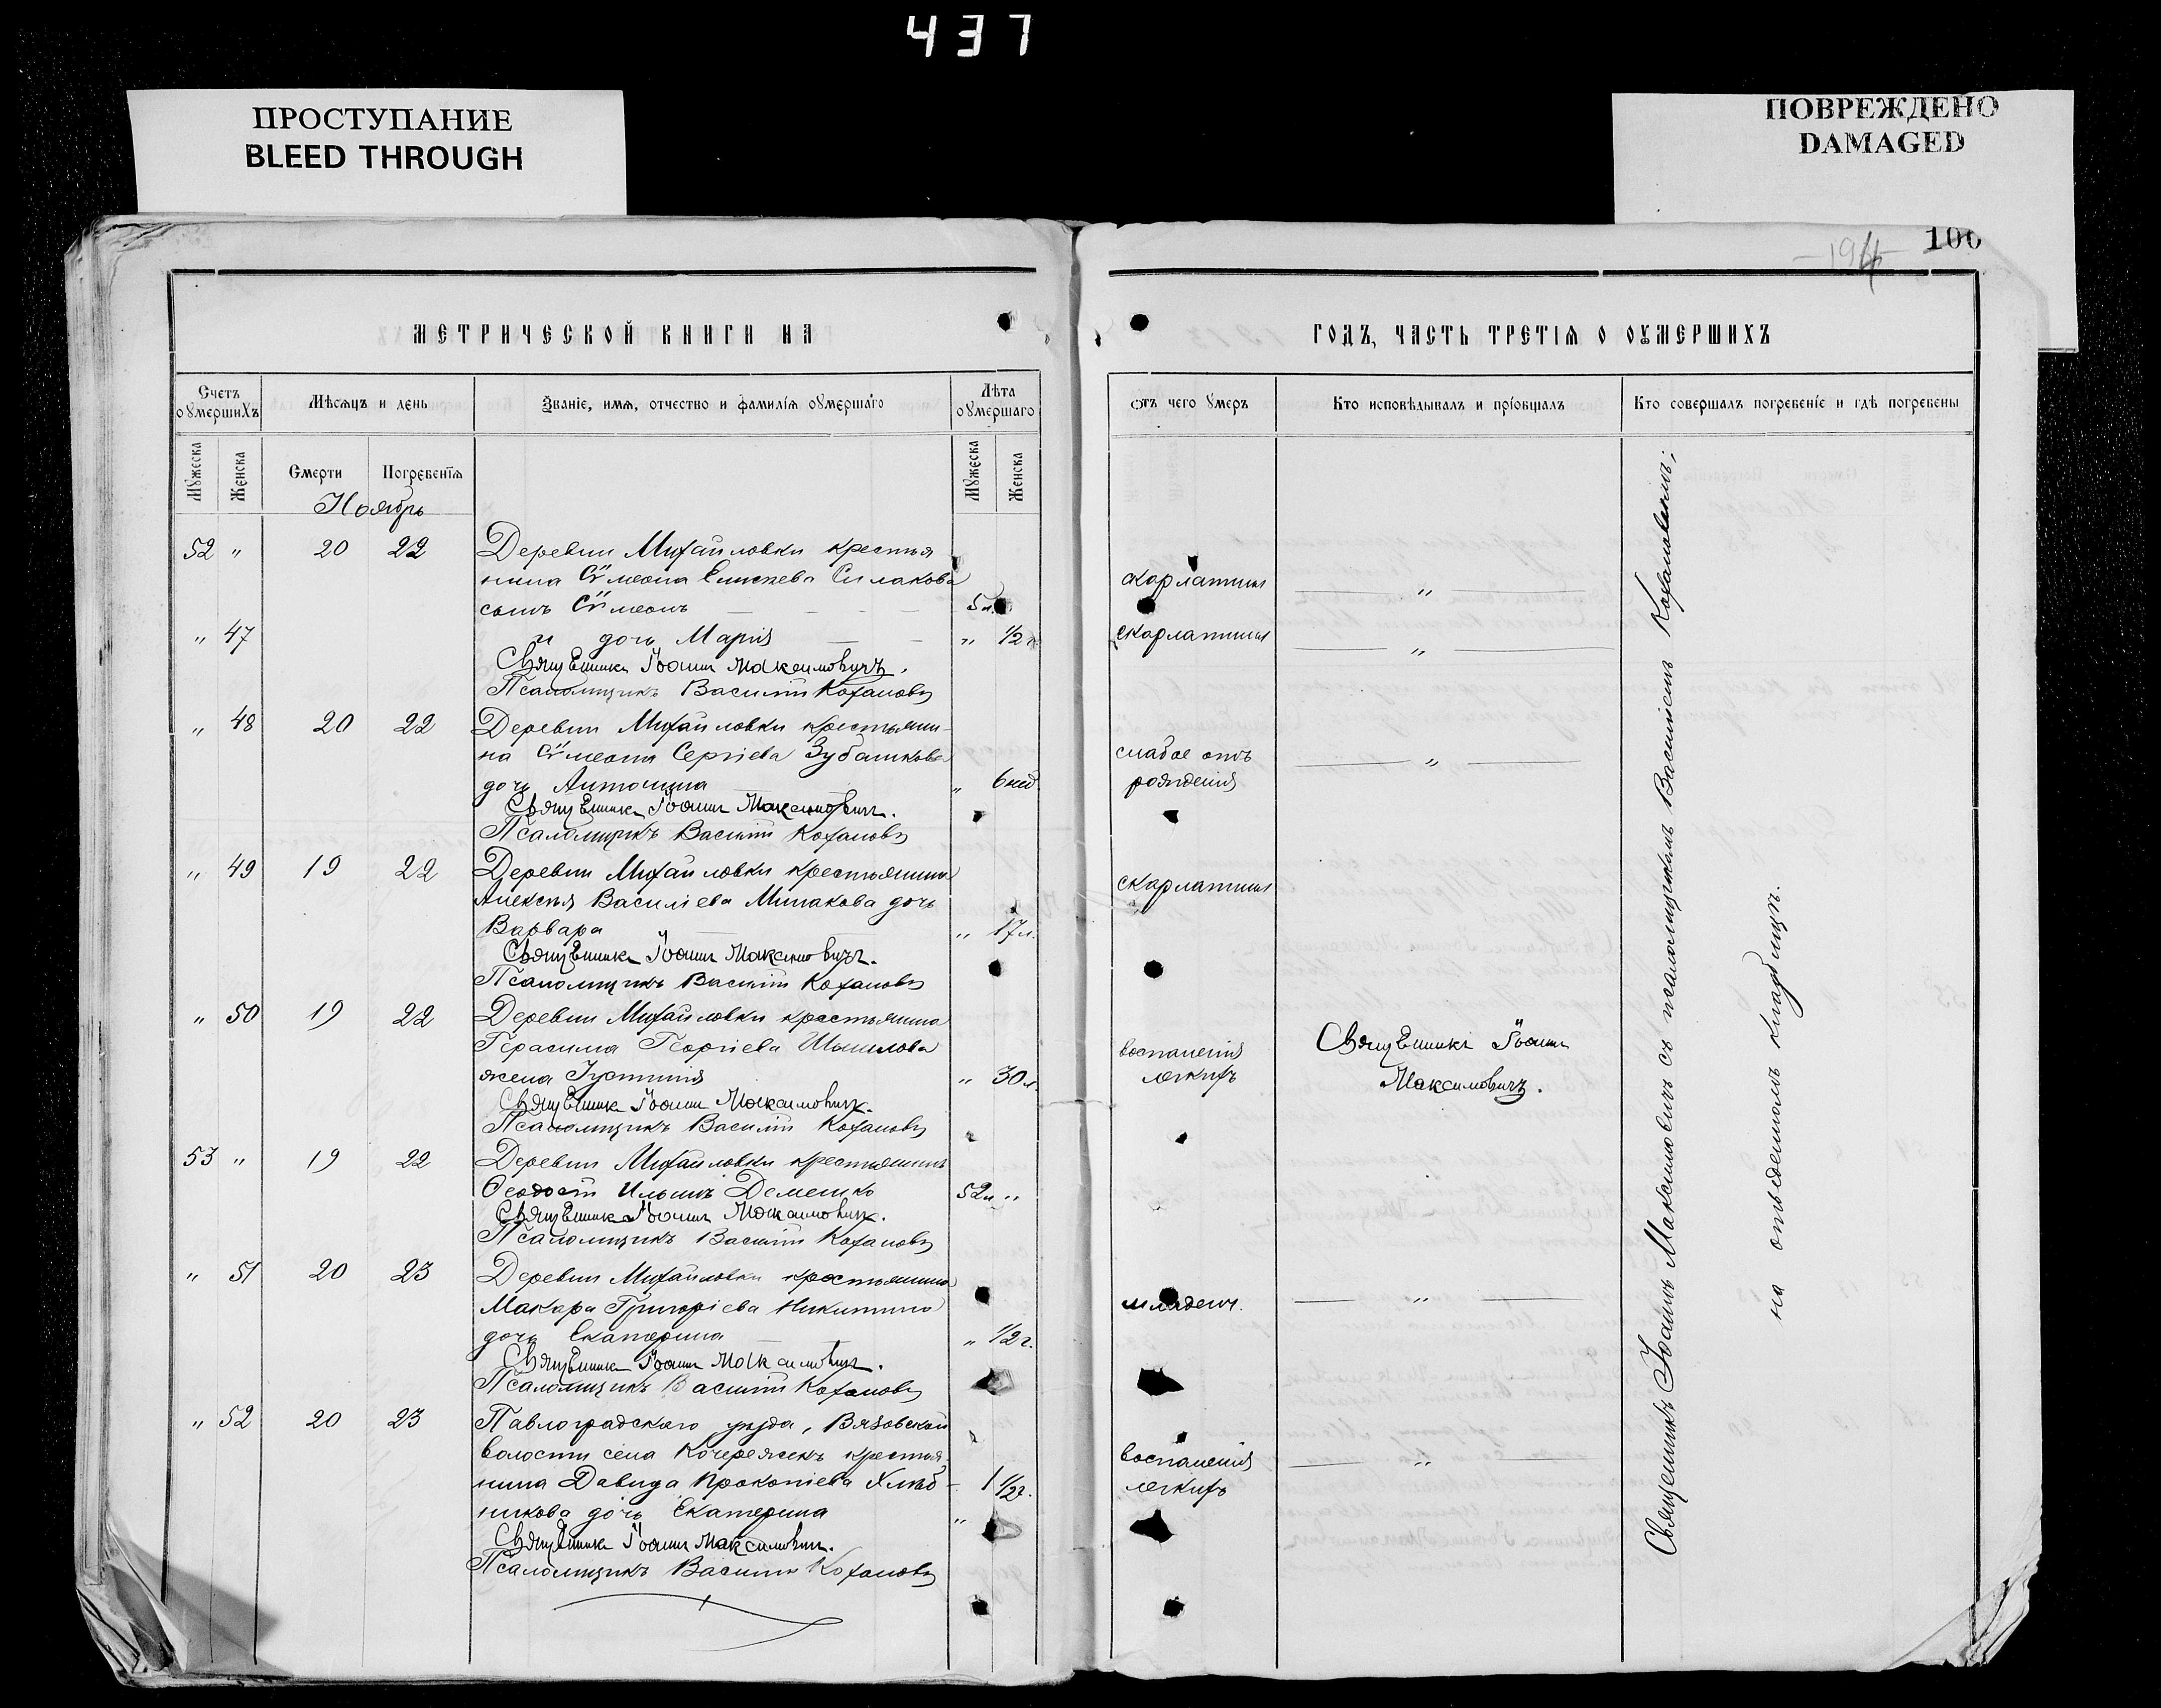 437
ПРОСТУПАНИЕ
BLEED THROUGH
ПОВРЕЖДЕНО
DAMAGED
100
МЕТРИЧЕСКОЙ КНИГИ НА
Счетъ оумершихъ
Мѣсяцъ и день
Званіе, имя, отчество и фамилія оумершаго
Лѣта оумершаго
Мужеска
Женска
Смерти
Погребенія
Мужеска
Женска
Ноябрь
52 " 20 22 Деревни Михайловки крестья
нина Сѵмеона Елисеева Силакова
сынъ Сѵмеонъ 5 л.
" 47 и дочь Марія " 1/2
Священникъ Іоаннъ Максимовичъ.
Псаломщикъ Василій Кохановъ
" 48 20 22 Деревни Михайловки крестьяни-
на Сѵмеона Сергіева Зубашкова
дочь Антонина " 6 нед
Священникъ Іоаннъ Максимовичъ.
Псаломщикъ Василій Кохановъ
" 49 19 22 Деревни Михайловки крестьянина
Алексѣя Василіева Минакова дочь
Варвара " 17 л.
Священникъ Іоаннъ Максимовичъ.
Псаломщикъ Василій Кохановъ
" 50 19 22 Деревни Михайловки крестьянина
Герасима Георгіева
жена Іустинія " 30 л.
Священникъ Іоаннъ Максимовичъ.
Псаломщикъ Василій Кохановъ
53 " 19 22 Деревни Михайловки крестьянинъ
Ѳеодосій Ильинъ Демешко 52 л "
Священникъ Іоаннъ Максимовичъ.
Псаломщикъ Василій Кохановъ
" 51 20 23 Деревни Михайловки крестьянина
Макара Григоріева Никитина
дочь Екатерина " 1/2 г.
Священникъ Іоаннъ Максимовичъ.
Псаломщикъ Василій Кохановъ
" 52 20 23 Павлоградскаго уѣзда, Вязовской
волости села Кочережекъ крестья-
нина Давида Прокопіева Хлѣб- 1 1/2 г.
никова дочь Екатерина "
Священникъ Іоаннъ Максимовичъ.
Псаломщикъ Василій Кохановъ
ГОДЪ, ЧАСТЬ ТРЕТІЯ О ОУМЕРШИХЪ
Отъ чего умеръ
Кто исповѣдывалъ и пріобщалъ
Кто совершалъ погребеніе и гдѣ погребены
скарлатины "
скарлатины "
слабое отъ "
рожденія
скарлатины
воспаленія Священникъ Іоаннъ
легкихъ Максимовичъ.
младенч. "
воспаленія "
легкихъ
Священникъ Іоаннъ Максимовичъ съ псаломщикомъ Василіемъ Кохановымъ;
на отведенномъ кладбищѣ.